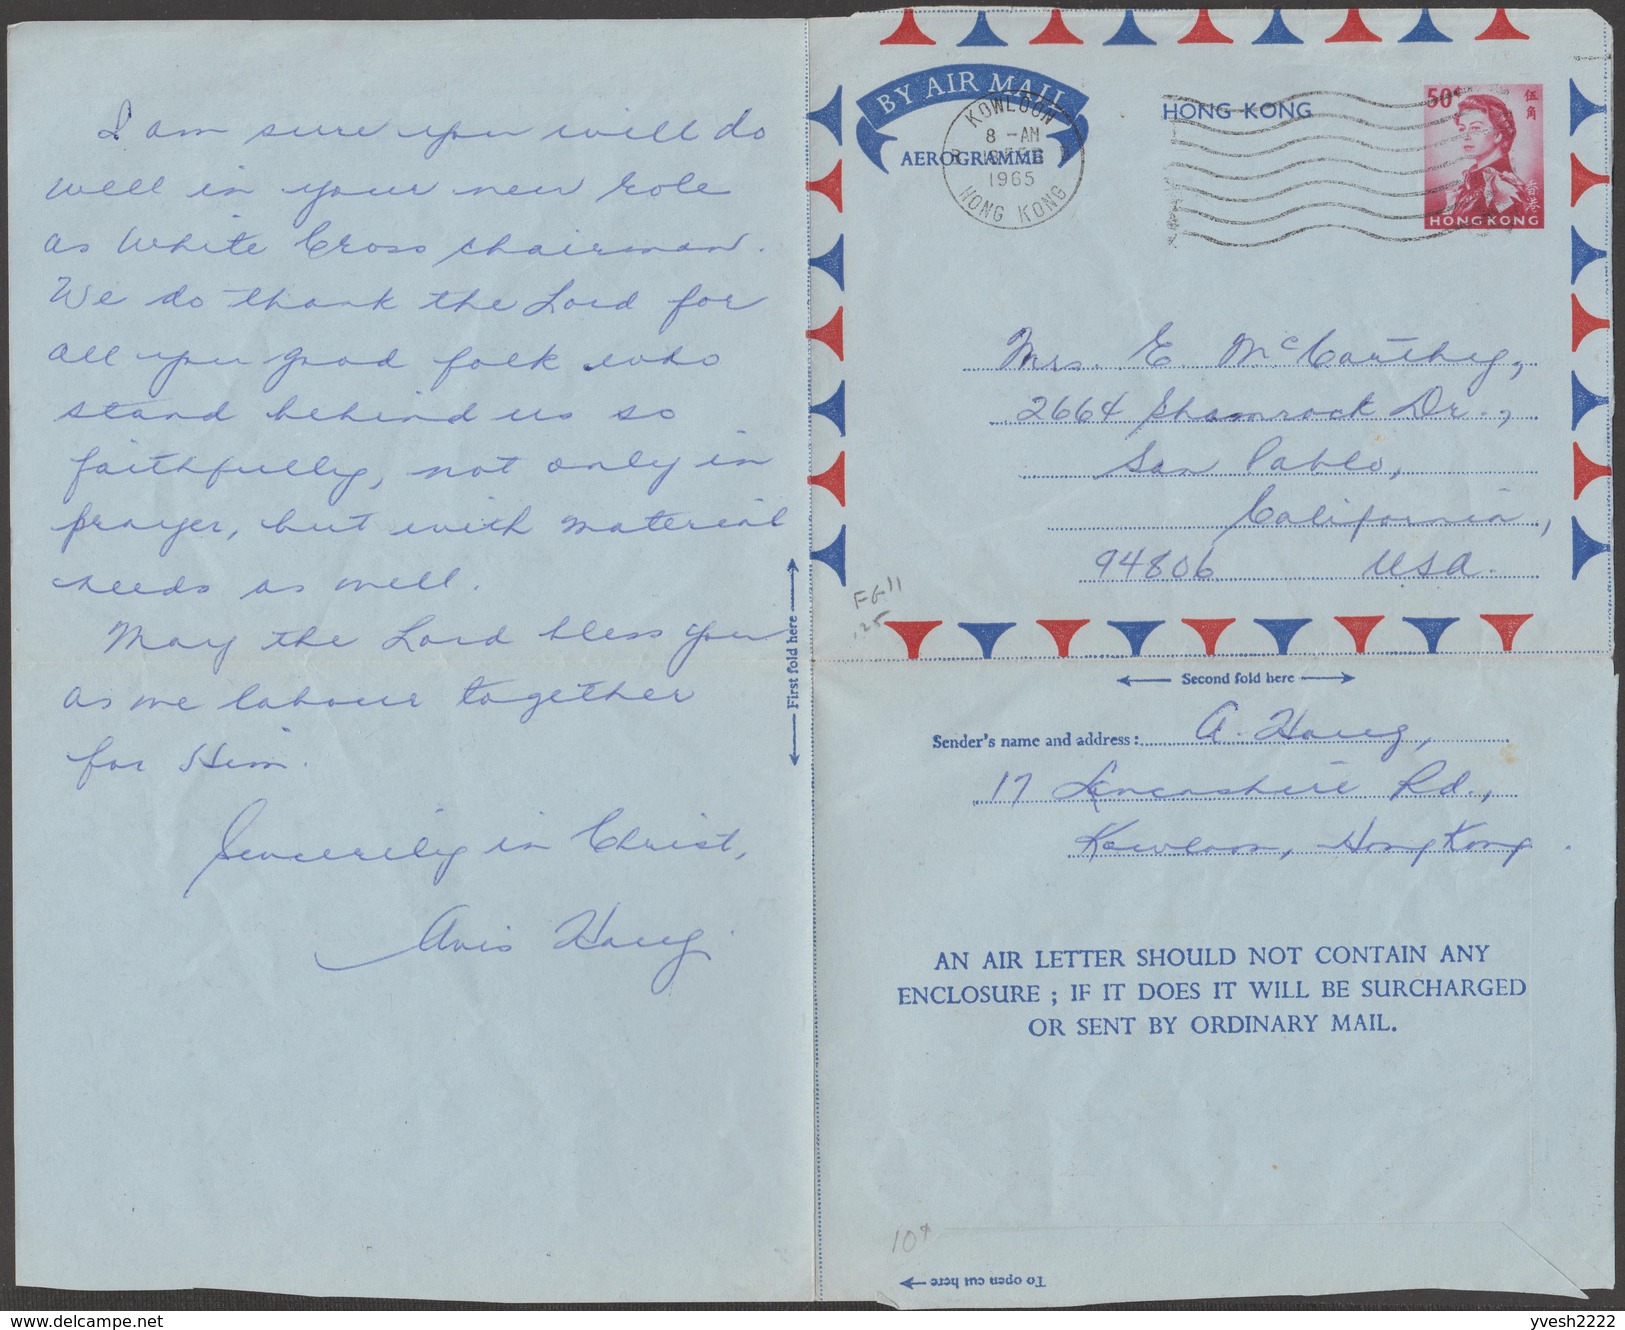 I am sure you will do
well in your new role
as White Cross chairman.
We do thank the Lord for
all you good folk who
stand behind us so
faithfully, not only in
prayer, but with material
needs as well.
May the Lord bless you
as we labour together
for Him.
Sincerely in Christ,
Avis Haug.
← First fold here →
BY AIR MAIL
AEROGRAMME
KOWLOON
8 -AM
1965
HONG KONG
HONG KONG
50¢
伍角
香港
HONG KONG
Mrs. E. McCarthey,
2664 Shamrock Dr.,
San Pablo,
California,
94806 USA.
FG11
.25
← Second fold here →
Sender's name and address: A. Haug,
17 Lancashire Rd.,
Kowloon, Hong Kong.
AN AIR LETTER SHOULD NOT CONTAIN ANY
ENCLOSURE ; IF IT DOES IT WILL BE SURCHARGED
OR SENT BY ORDINARY MAIL.
To open cut here →
delcampe.net
yvesh2222